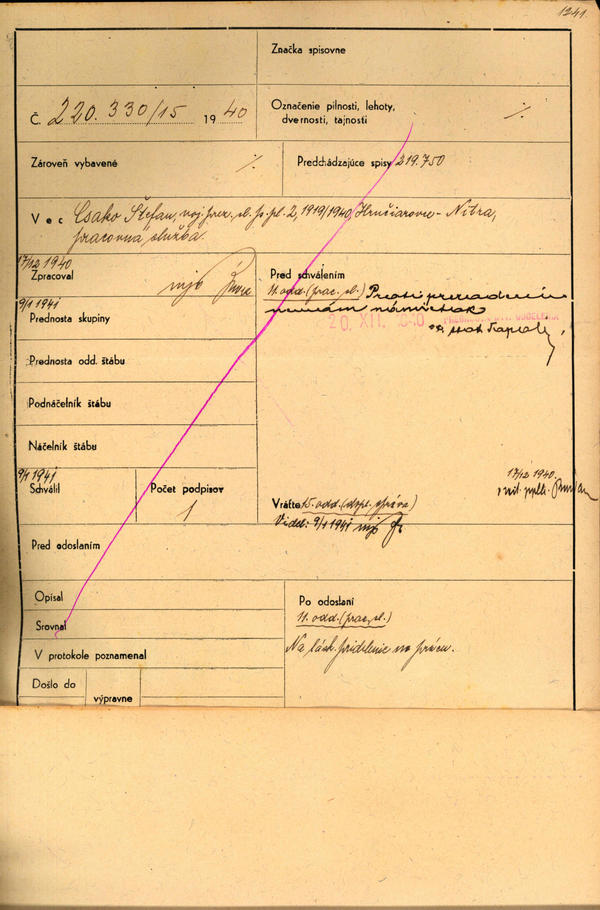 1241.
Značka spisovne
Č. 220.330/15 1940
Označenie pilnosti, lehoty,
dvernosti, tajnosti
%
Zároveň vybavené %
Predchádzajúce spisy 219.750
Vec Csako Štefan, voj. prez. sl. 2, 1919/1940, Hrnčiarovce - Nitra,
pracovná služba.
17/12 1940
Zpracoval mjr
Pred schválením
11. odd. (prac. sl.) Proti prevedeniu
nemám námietok
20. XII. 1940
stot.
9/1 1941
Prednosta skupiny
Prednosta odd. štábu
Podnáčelník štábu
Náčelník štábu
9/1 1941
Schválil
Počet podpisov
1
17/12 1940.
Vráťte 15. odd. (dopl. správa)
Videl: 9/1 1941 mjr
Pred odoslaním
Opísal
Srovnal
V protokole poznamenal
Došlo do
výpravne
Po odoslaní
11. odd. (prac. sl.)
Na lásk. pridelenie na prácu.